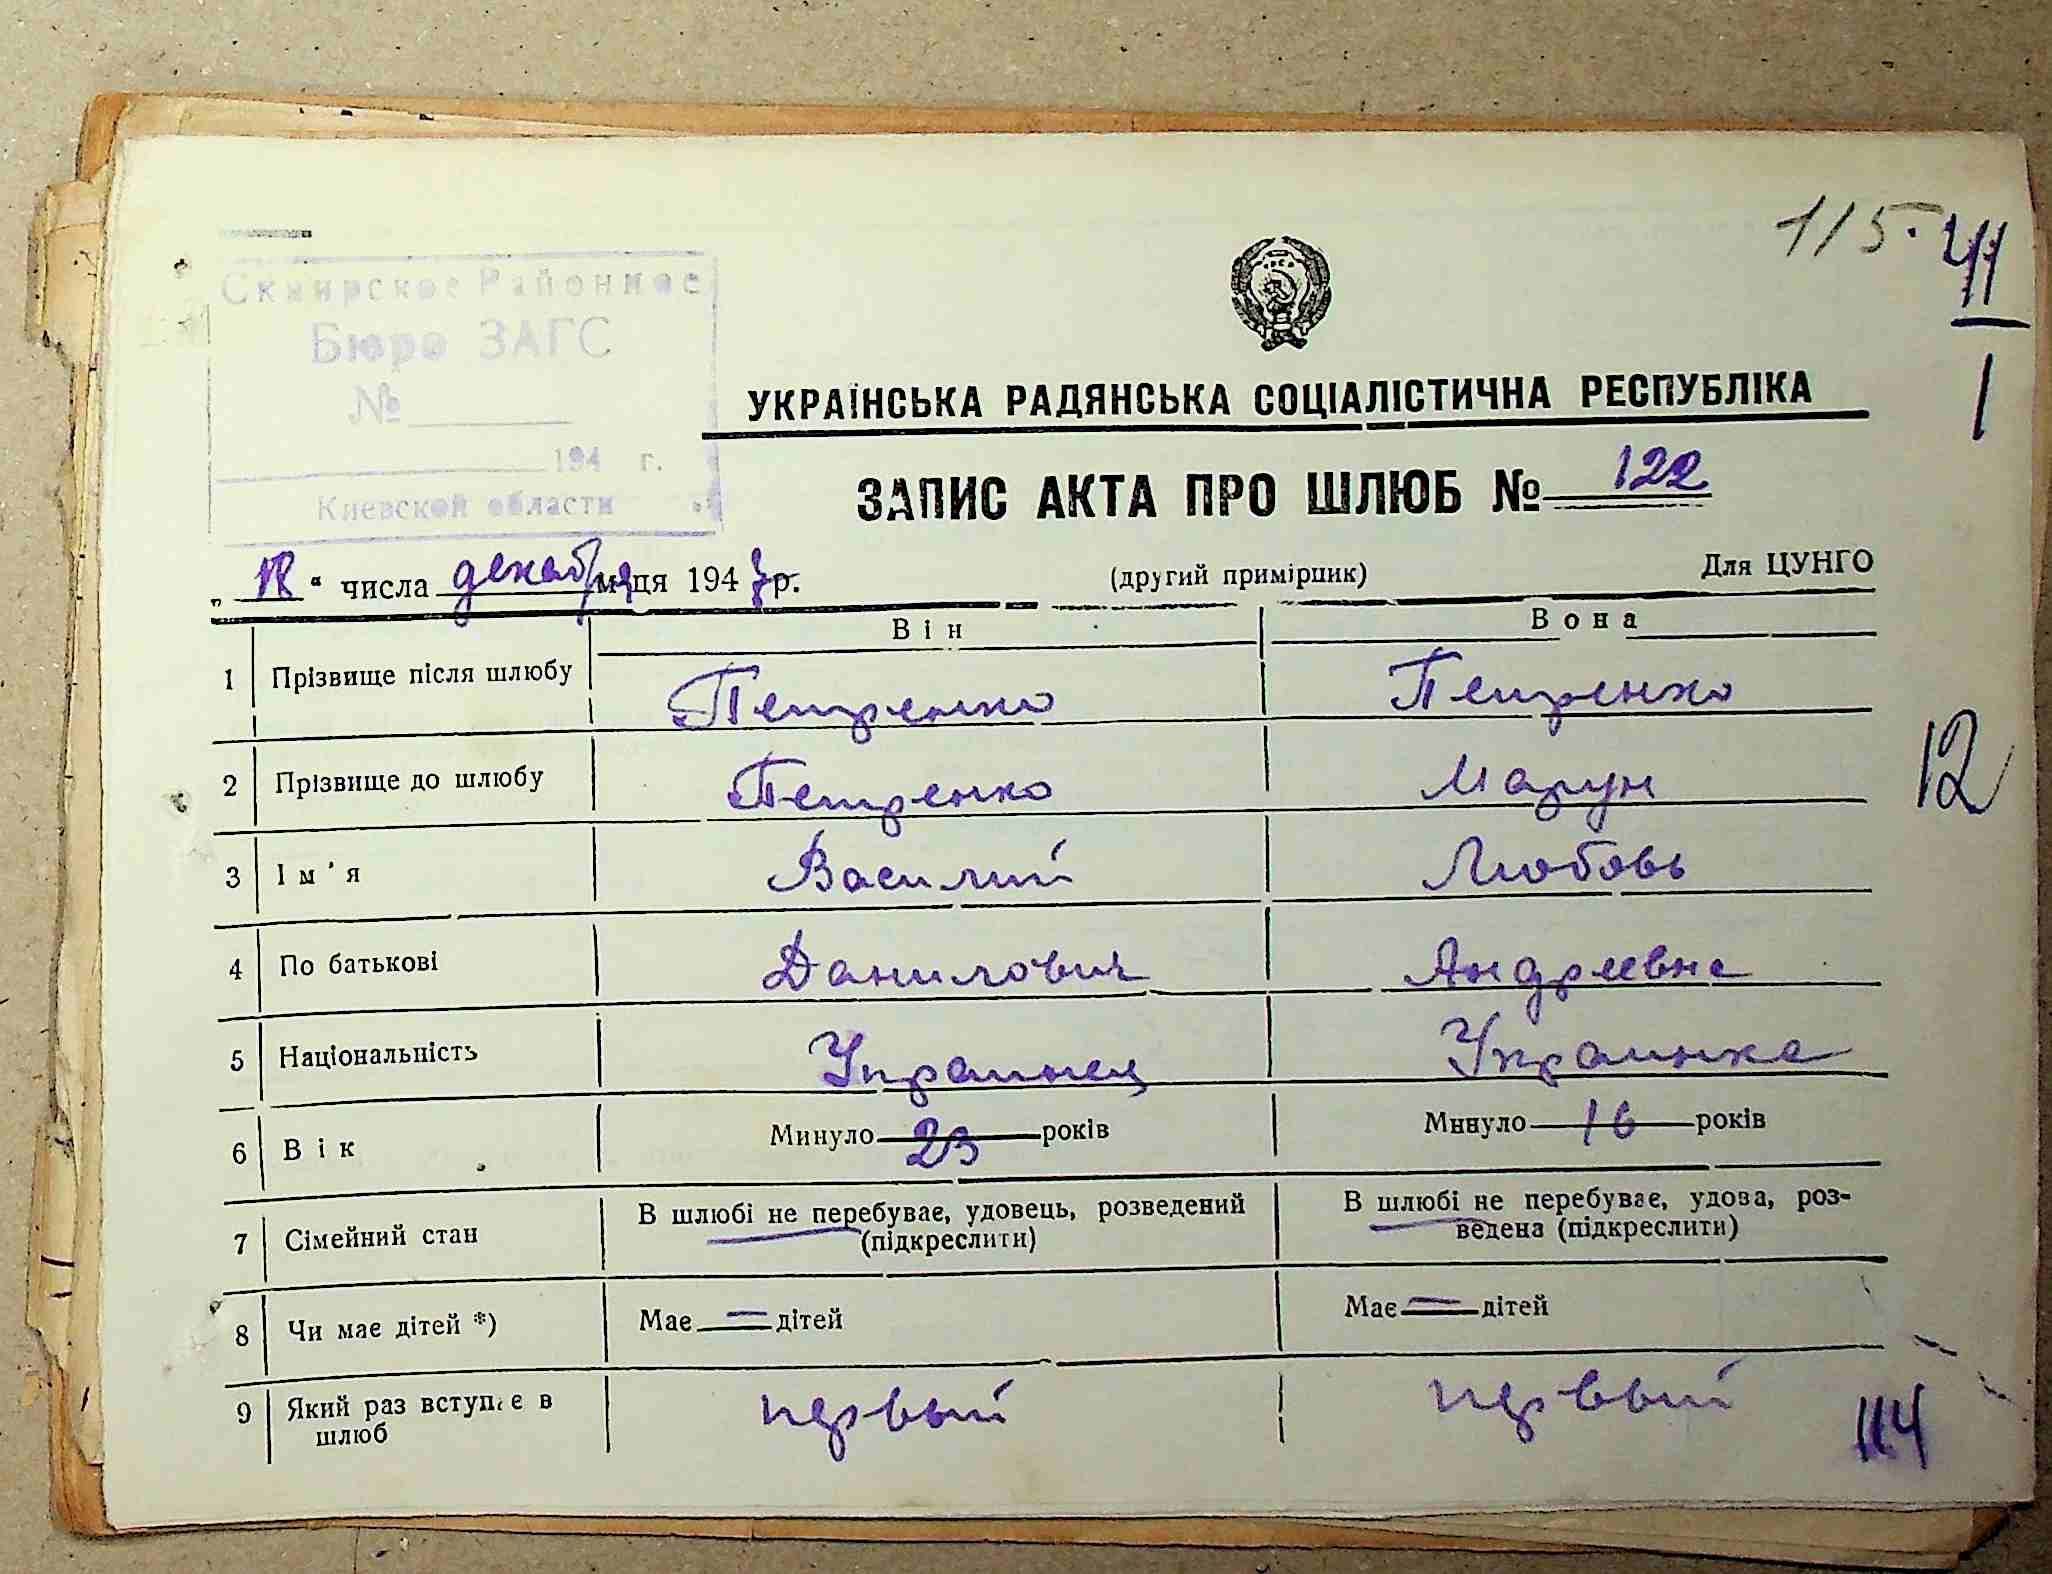 115. 41
1
Сквирское Районное
Бюро ЗАГС
№
194 г.
Киевской области
УКРАЇНСЬКА РАДЯНСЬКА СОЦІАЛІСТИЧНА РЕСПУБЛІКА
ЗАПИС АКТА ПРО ШЛЮБ № 122
„ “ числа декабря м-ця 194 р.
(другий примірник)
Для ЦУНГО
Він Вона
1 Прізвище після шлюбу Петренко Петренко
2 Прізвище до шлюбу Петренко Марун
12
3 Ім'я Василий Любовь
4 По батькові Данилович Андреевна
5 Національність Украинец Украинка
6 Вік Минуло 23 років Минуло 16 років
7 Сімейний стан В шлюбі не перебуває, удовець, розведений В шлюбі не перебуває, удова, роз-
(підкреслити) ведена (підкреслити)
8 Чи має дітей *) Має — дітей Має — дітей
9 Який раз вступає в первый первый
шлюб
114